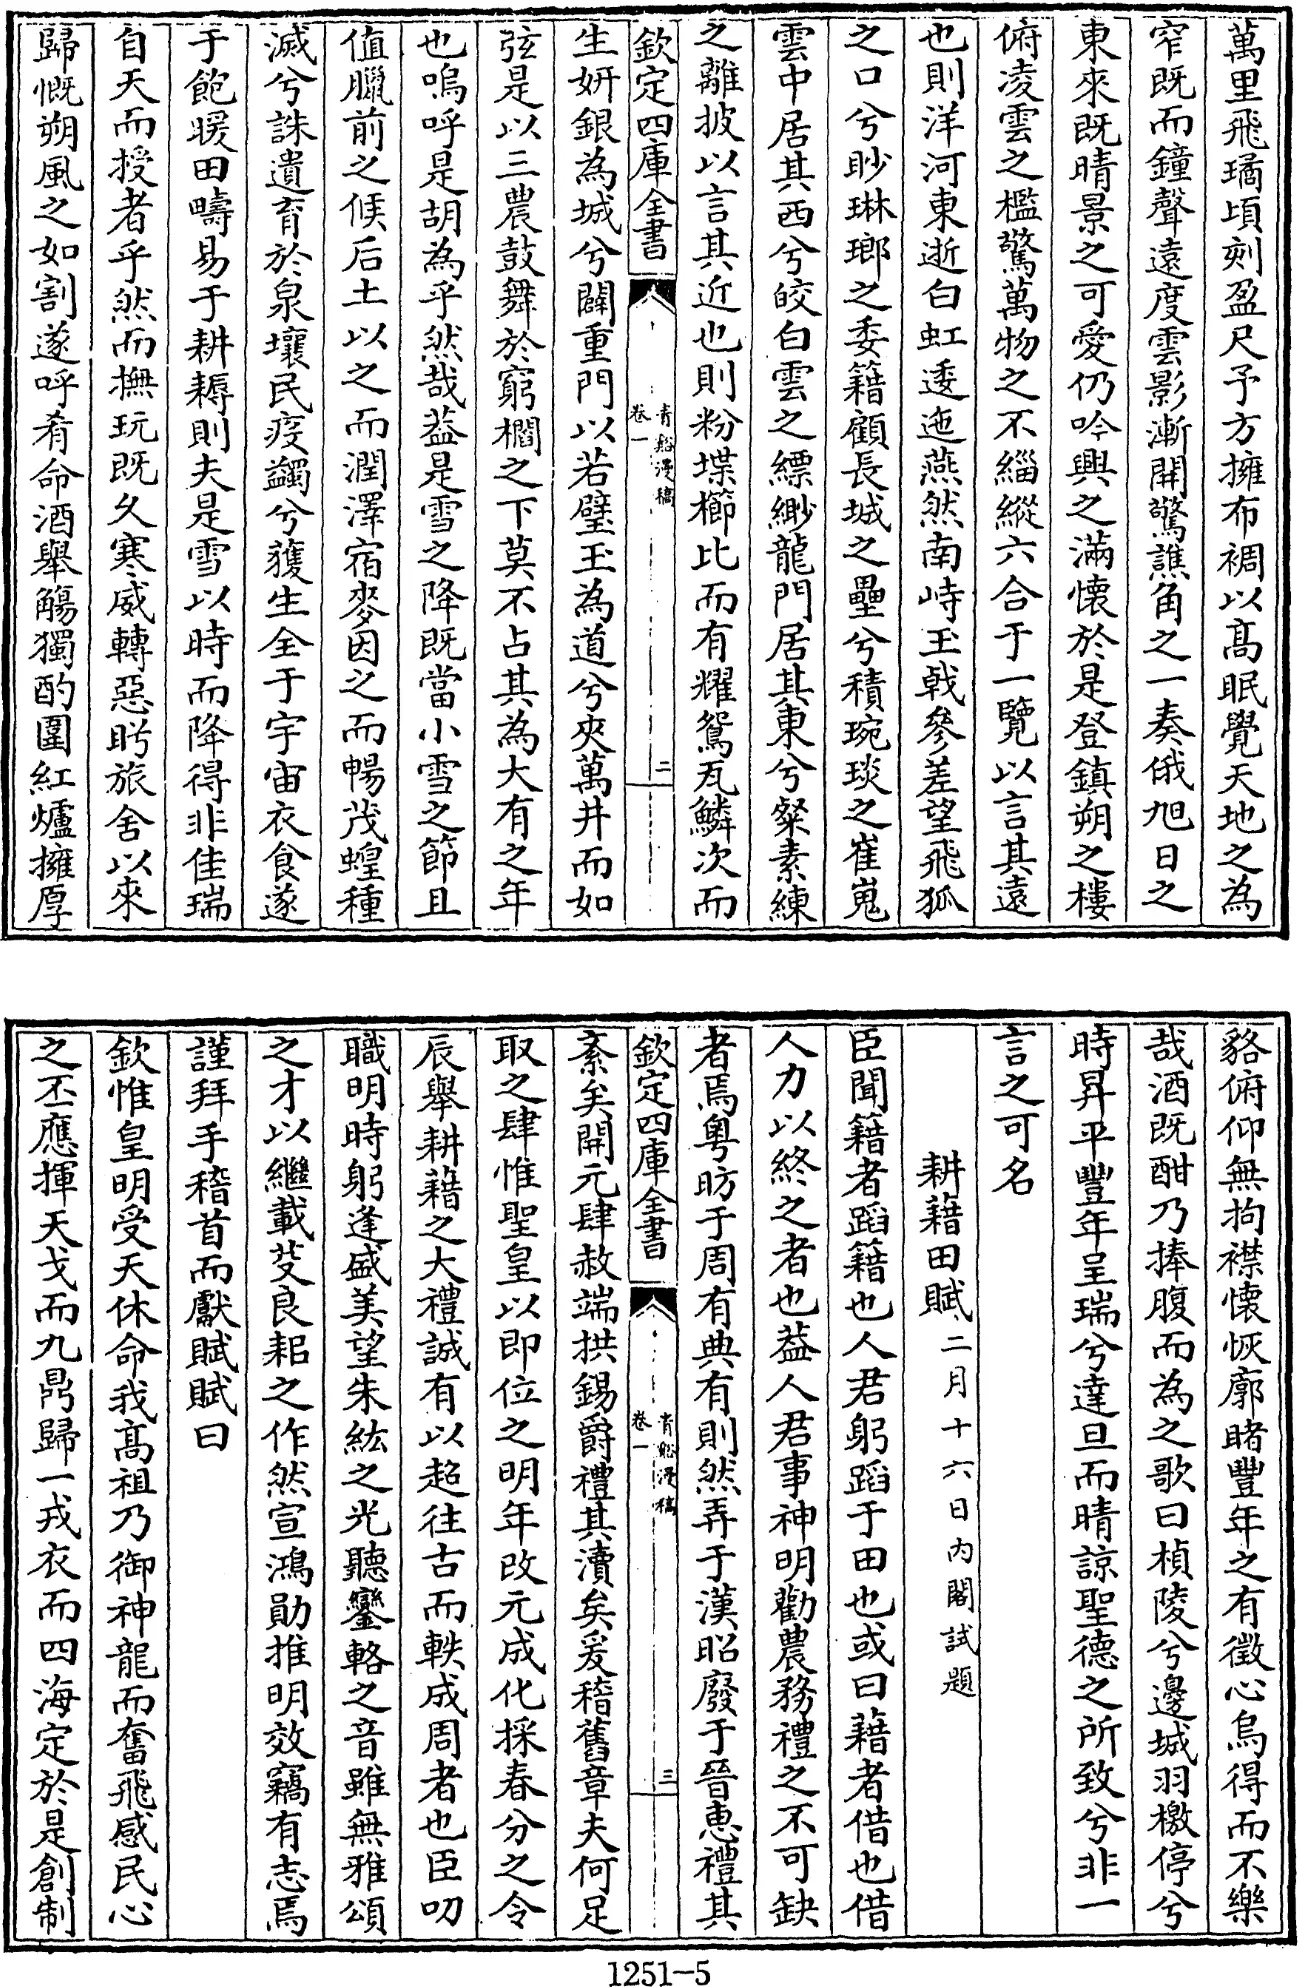 萬里飛璚頃刻盈尺予方擁布裯以髙眠覺天地之為
窄既而鐘聲遠度雲影漸開驚譙角之一奏俄旭日之
東來既晴景之可愛仍吟興之滿懷於是登鎮朔之樓
俯凌雲之檻驚萬物之不緇縱六合于一覽以言其遠
也則洋河東逝白虹逶迤燕然南峙玉戟參差望飛狐
之口兮眇琳瑯之委籍顧長城之壘兮積琬琰之崔嵬
雲中居其西兮皎白雲之縹緲龍門居其東兮粲素練
之離披以言其近也則粉堞櫛比而有耀鴛瓦鱗次而
欽定四庫全書
青谿漫稿
卷一
二
生妍銀為城兮闢重門以若璧玉為道兮夾萬井而如
弦是以三農鼓舞於窮櫩之下莫不占其為大有之年
也嗚呼是胡為乎然哉葢是雪之降既當小雪之節且
值臘前之候后土以之而潤澤宿麥因之而暢茂蝗種
滅兮誅遺育於泉壤民疫蠲兮獲生全于宇宙衣食遂
于飽暖田疇易于耕耨則夫是雪以時而降得非佳瑞
自天而授者乎然而撫玩既久寒威轉惡盻旅舍以來
歸慨朔風之如割遂呼肴命酒舉觴獨酌圍紅爐擁厚
貉俯仰無拘襟懷恢廓睹豐年之有徵心烏得而不樂
哉酒既酣乃捧腹而為之歌曰楨陵兮邊城羽檄停兮
時昇平豐年呈瑞兮達旦而晴諒聖德之所致兮非一
言之可名
耕藉田賦二月十六日内閣試題
臣聞籍者蹈籍也人君躬蹈于田也或曰藉者借也借
人力以終之者也葢人君事神明勸農務禮之不可缺
者焉粤昉于周有典有則然弄于漢昭廢于晉惠禮其
欽定四庫全書
青谿漫稿
卷一
三
紊矣開元肆赦端拱錫爵禮其瀆矣爰稽舊章夫何足
取之肆惟聖皇以即位之明年改元成化採春分之令
辰舉耕藉之大禮誠有以超往古而軼成周者也臣叨
職明時躬逢盛美望朱紘之光聽鑾輅之音雖無雅頌
之才以繼載芟良耜之作然宣鴻勛推明效竊有志焉
謹拜手稽首而獻賦賦曰
欽惟皇明受天休命我髙祖乃御神龍而奮飛感民心
之丕應揮天戈而九鼎歸一戎衣而四海定於是創制
1251-5